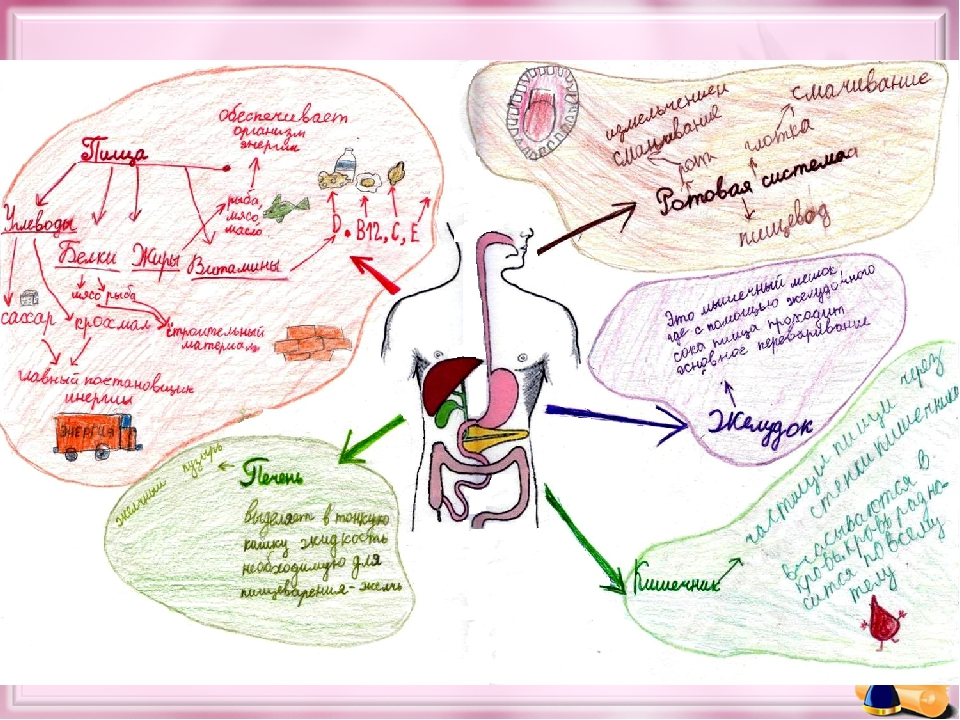 Пища
обеспечивает
организм
энергии
Углеводы
Белки
Жиры
Витамины
рыба,
мясо,
масло
D, B12, C, E
мясо рыба
сахар
крохмал
строительный
материал
главный постановщик
инергии
ЭНЕРГИЯ
измельчением
смащивание
смачивание
рот
глотка
Ротовая система
пищевод
Это мышечный мешок,
где с помощью желудочного
сока пища проходит
основное переваривание
Желудок
желчный пузырь
Печень
выделяет в тонкую
кишку жидкость
необходимую для
пищеварения - желчь
Кишечник
частицы пищи через
стенки кишечника
всасываются в
кровь, кровь разно-
сится по всему
телу